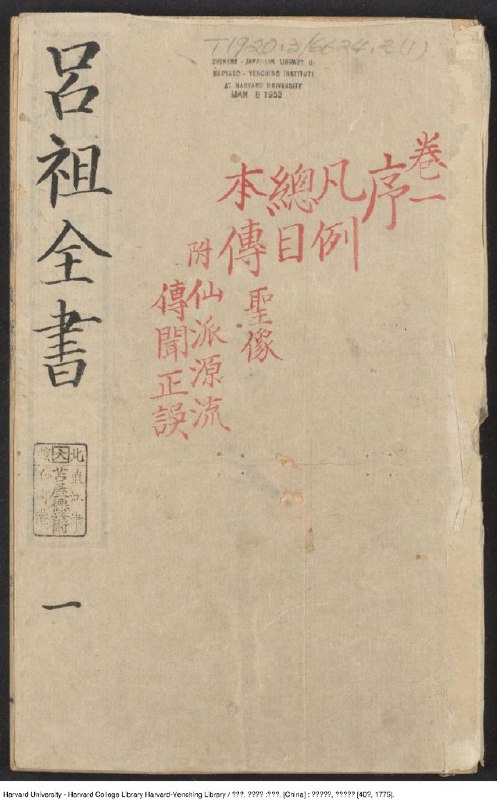 T1920.3/6624.2(1)
CHINESE - JAPANESE LIBRARY OF
HARVARD - YENCHING INSTITUTE
AT HARVARD UNIVERSITY
JAN 8 1953
卷一
序
凡例
總目
本傳 聖像
附仙派源流
傳聞正誤
呂祖全書
大
一
Harvard University - Harvard College Library Harvard-Yenching Library / ???. ???? :???. [China] : ?????, ????? [40?, 1775].